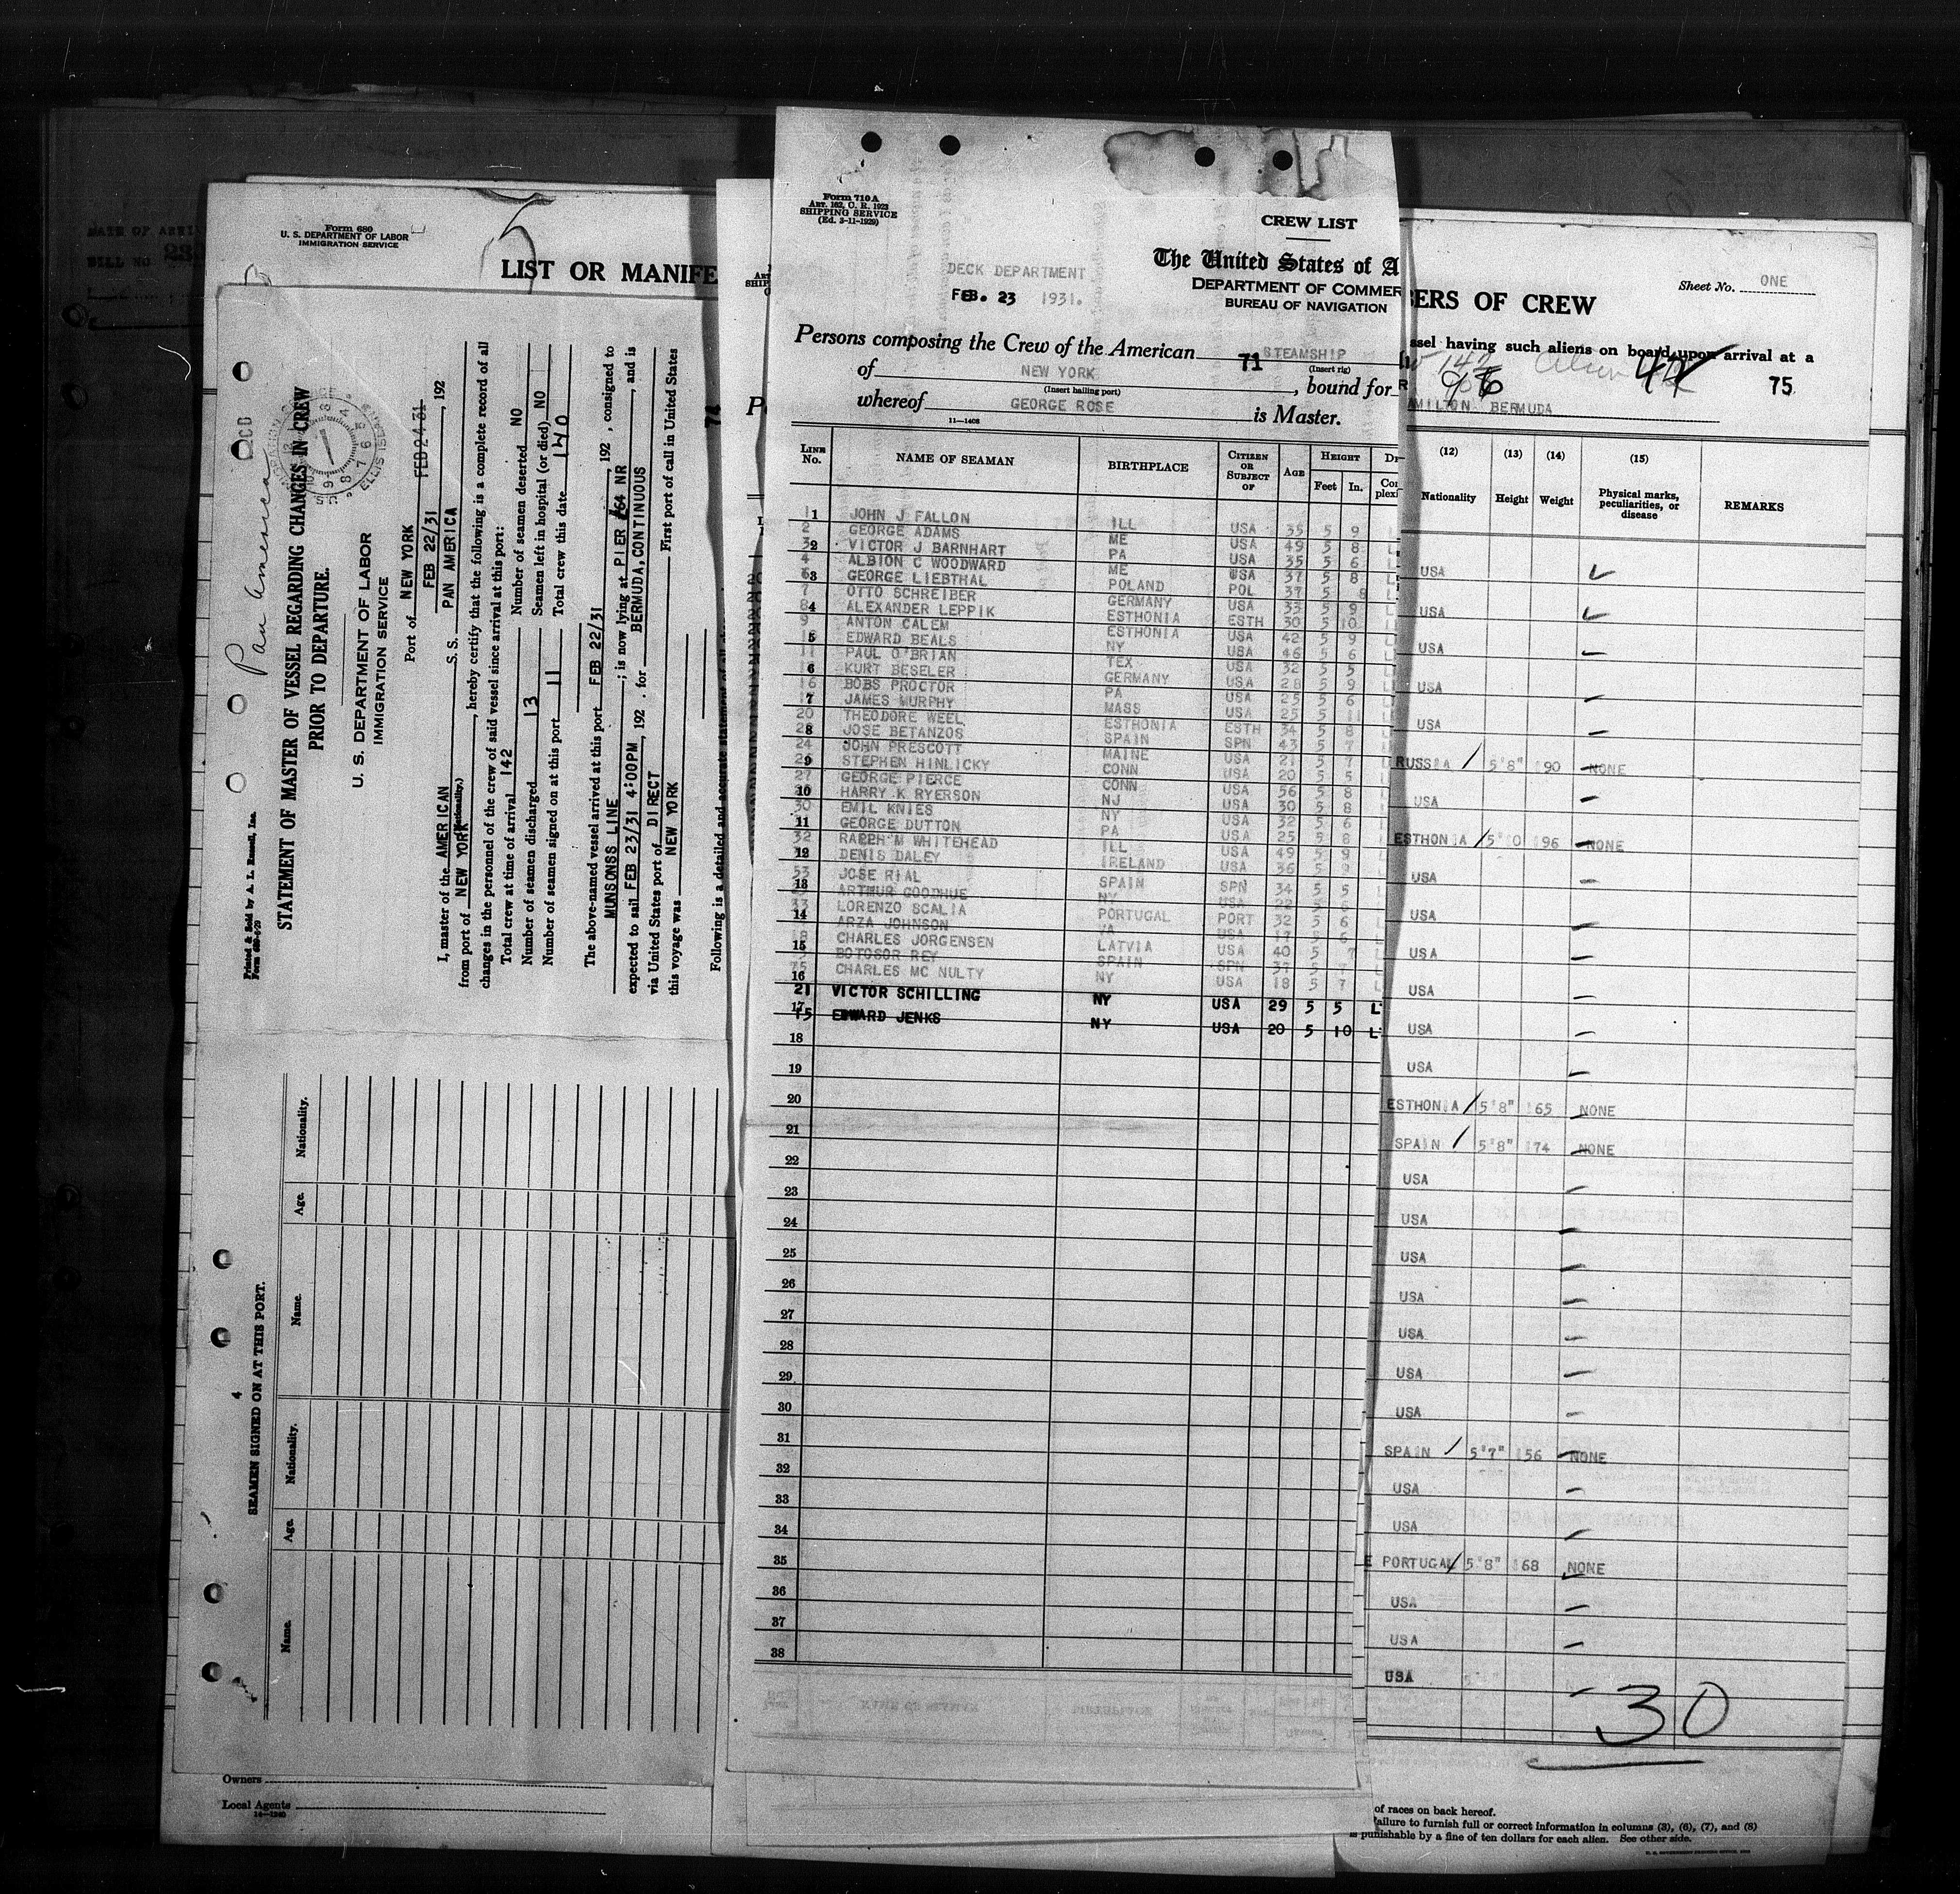 Form 680
U. S. DEPARTMENT OF LABOR
IMMIGRATION SERVICE
LIST OR MANIFE
Pan America
Printed & Sold by A. L. Russell, Inc.
STATEMENT OF MASTER OF VESSEL REGARDING CHANGES IN CREW
PRIOR TO DEPARTURE.
U. S. DEPARTMENT OF LABOR
IMMIGRATION SERVICE
Port of NEW YORK
FEB 22/31, 192
S. S. PAN AMERICA
I, master of the AMERICAN
from port of NEW YORK, hereby certify that the following is a complete record of all
changes in the personnel of the crew of said vessel since arrival at this port:
Total crew at time of arrival 142 Number of seamen deserted NO
Number of seamen discharged 13 Seamen left in hospital (or died) NO
Number of seamen signed on at this port 11 Total crew this date 140
The above-named vessel arrived at this port FEB 22/31, 192 , consigned to
MUNSONSS LINE; is now lying at PIER 64 NR
expected to sail FEB 23/31 4:00PM, 192 . for BERMUDA, CONTINUOUS, and is
via United States port of DIRECT
this voyage was NEW YORK First port of call in United States
SEAMEN SIGNED ON AT THIS PORT.
4
Name. Age. Nationality. Name. Age. Nationality.
Owners
Local Agents
Form 710 A
ART. 162, C. R. 1923
SHIPPING SERVICE
(Ed. 3-11-1929)
CREW LIST
The United States of A
DEPARTMENT OF COMMER
BUREAU OF NAVIGATION
DECK DEPARTMENT
FEB. 23 1931.
Persons composing the Crew of the American STEAMSHIP
71 (Insert rig)
of NEW YORK, bound for
(Insert hailing port)
whereof GEORGE ROSE is Master.
11—1408
LINE No. NAME OF SEAMAN BIRTHPLACE CITIZEN OR SUBJECT OF AGE HEIGHT Feet In.
1 JOHN J FALLON ILL USA 35 5 9
2 GEORGE ADAMS ME USA 49 5 8
VICTOR J BARNHART PA USA 35 5 6
4 ALBION C WOODWARD ME USA 37 5 8
GEORGE LIEBTHAL POLAND POL 37 5 8
7 OTTO SCHREIBER GERMANY USA 33 5 9
8 ALEXANDER LEPPIK ESTHONIA ESTH 30 5 10
9 ANTON CALEM ESTHONIA USA 42 5 9
EDWARD BEALS NY USA 46 5 6
11 PAUL O'BRIAN TEX USA 32 5 5
KURT BESELER GERMANY USA 28 5 9
16 BOBS PROCTOR PA USA 25 5 6
JAMES MURPHY MASS USA 25 5 11
20 THEODORE WEEL ESTHONIA ESTH 34 5 8
JOSE BETANZOS SPAIN SPN 43 5 7
24 JOHN PRESCOTT MAINE USA 21 5 7
STEPHEN HINLICKY CONN USA 20 5 5
27 GEORGE PIERCE CONN USA 56 5 8
HARRY K RYERSON NJ USA 30 5 8
30 EMIL KNIES NY USA 32 5 6
GEORGE DUTTON PA USA 25 5 8
32 RALPH M WHITEHEAD ILL USA 49 5 9
DENIS DALEY IRELAND USA 36 5 9
JOSE RIAL SPAIN SPN 34 5 5
ARTHUR GOODHUE NY USA 22 5
LORENZO SCALIA PORTUGAL PORT 32 5 6
ARZA JOHNSON VA USA 17 5 6
CHARLES JORGENSEN LATVIA USA 40 5 7
BOTOSOR REY SPAIN SPN 37 5 7
CHARLES MC NULTY NY USA 18 5 7
21 VICTOR SCHILLING NY USA 29 5 5
15 EDWARD JENKS NY USA 20 5 10
18
19
20
21
22
23
24
25
26
27
28
29
30
31
32
33
34
35
36
37
38
Sheet No. ONE
BERS OF CREW
ssel having such aliens on board upon arrival at a
75
MILTON BERMUDA
(12) (13) (14) (15)
Nationality Height Weight Physical marks, peculiarities, or disease REMARKS
USA
USA
USA
USA
USA
RUSSIA 5'8" 190 NONE
USA
ESTHONIA 5'10 196 NONE
USA
USA
USA
USA
USA
USA
ESTHONIA 5'8" 165 NONE
SPAIN 5'8" 174 NONE
USA
USA
USA
USA
USA
USA
USA
SPAIN 5'7" 156 NONE
USA
USA
PORTUGAL 5'8" 168 NONE
USA
USA
USA
30
of races on back hereof.
failure to furnish full or correct information in columns (3), (6), (7), and (8)
is punishable by a fine of ten dollars for each alien. See other side.